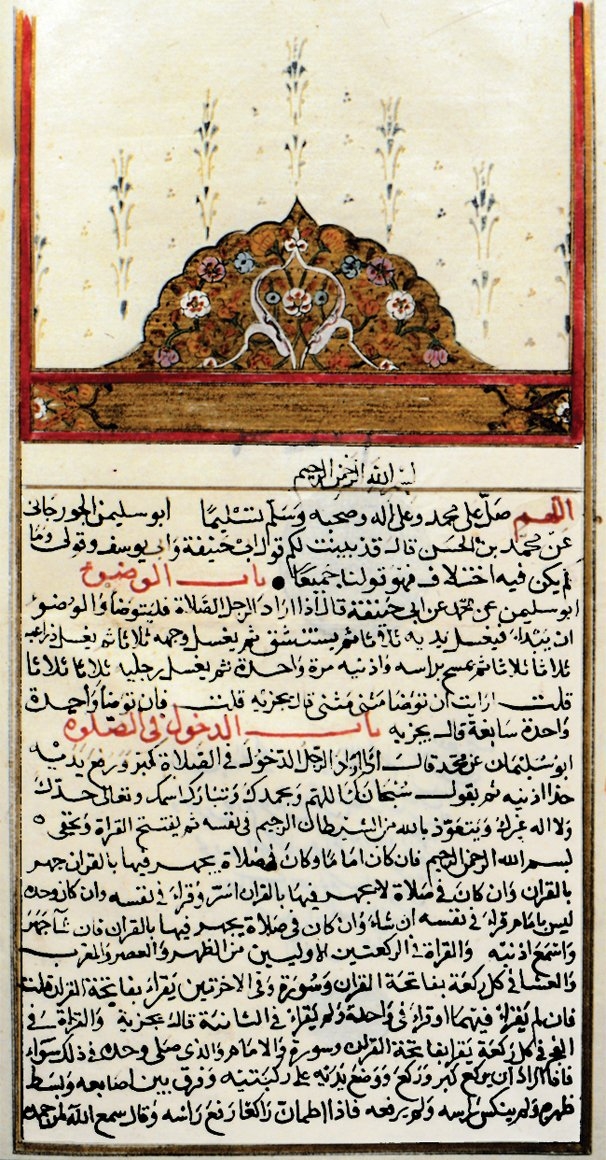 بسم الله الرحمن الرحيم
اللهم صل على محمد وعلى اله وصحبه وسلم تسليما ابو سليمن الجورجانى
عن محمد بن الحسن قال قد بينت لكم قول ابى حنيفة وابى يوسف وقولى وما
لم يكن فيه اختلاف فهو قولنا جميعا باب الوضوء
ابو سليمن عن محمد عن ابى حنيفة قال اذا اراد الرجل الصلاة فليتوضا والوضوء
ان يبتداء فيغسل يديه ثلاثا ثم يستنشق ثم يغسل وجهه ثلاثا ثم يغسل ذراعيه
ثلاثا ثلاثا ثم يمسح براسه واذنيه مرة واحدة ثم يغسل رجليه ثلاثا ثلاثا
قلت ارايت ان توضا مثنى مثنى قال يجزيه قلت فان توضا واحدة
واحدة سابغة قال يجزيه باب الدخول فى الصلوة
ابو سليمان عن محمد قال اذا اراد الرجل الدخول فى الصلاة كبر ورفع يديه
حذا اذنيه ثم يقول سبحانك اللهم وبحمدك وتبارك اسمك وتعالى جدك
ولا اله غيرك ويتعوذ بالله من الشيطان الرجيم فى نفسه ثم يفتتح القراة ويخفى
بسم الله الرحمن الرحيم فان كان اماما وكان فى صلاة يجهر فيها بالقران جهر
بالقران وان كان فى صلاة لا يجهر فيها بالقران اسر وقراء فى نفسه وان كان وحده
ليس بامام قراء فى نفسه ان شاء وان كان فى صلاة يجهر فيها بالقران فان شا جهر
واسمع اذنيه والقراة فى الركعتين الاوليين من الظهر والعصر والمغرب
والعشا فى كل ركعة بفاتحة القران وسورة وفى الاخرتين يقراء بفاتحة القران قلت
فان لم يقراء فيهما او قراء فى واحدة ولم يقراء فى الثانية قال يجزية والقراة فى
الفجر فى كل ركعة يقرا بفاتحة القران وسورة والامام والذى صلى وحده فى ذلك سواء
فاذا اراد ان يركع كبر وركع ووضع يديه على ركبتيه وفرق بين اصابعه وبسط
ظهره ولم ينكس راسه ولم يرفعه فاذا اطمان راكعا رفع راسه وقال سمع الله لمن حمده